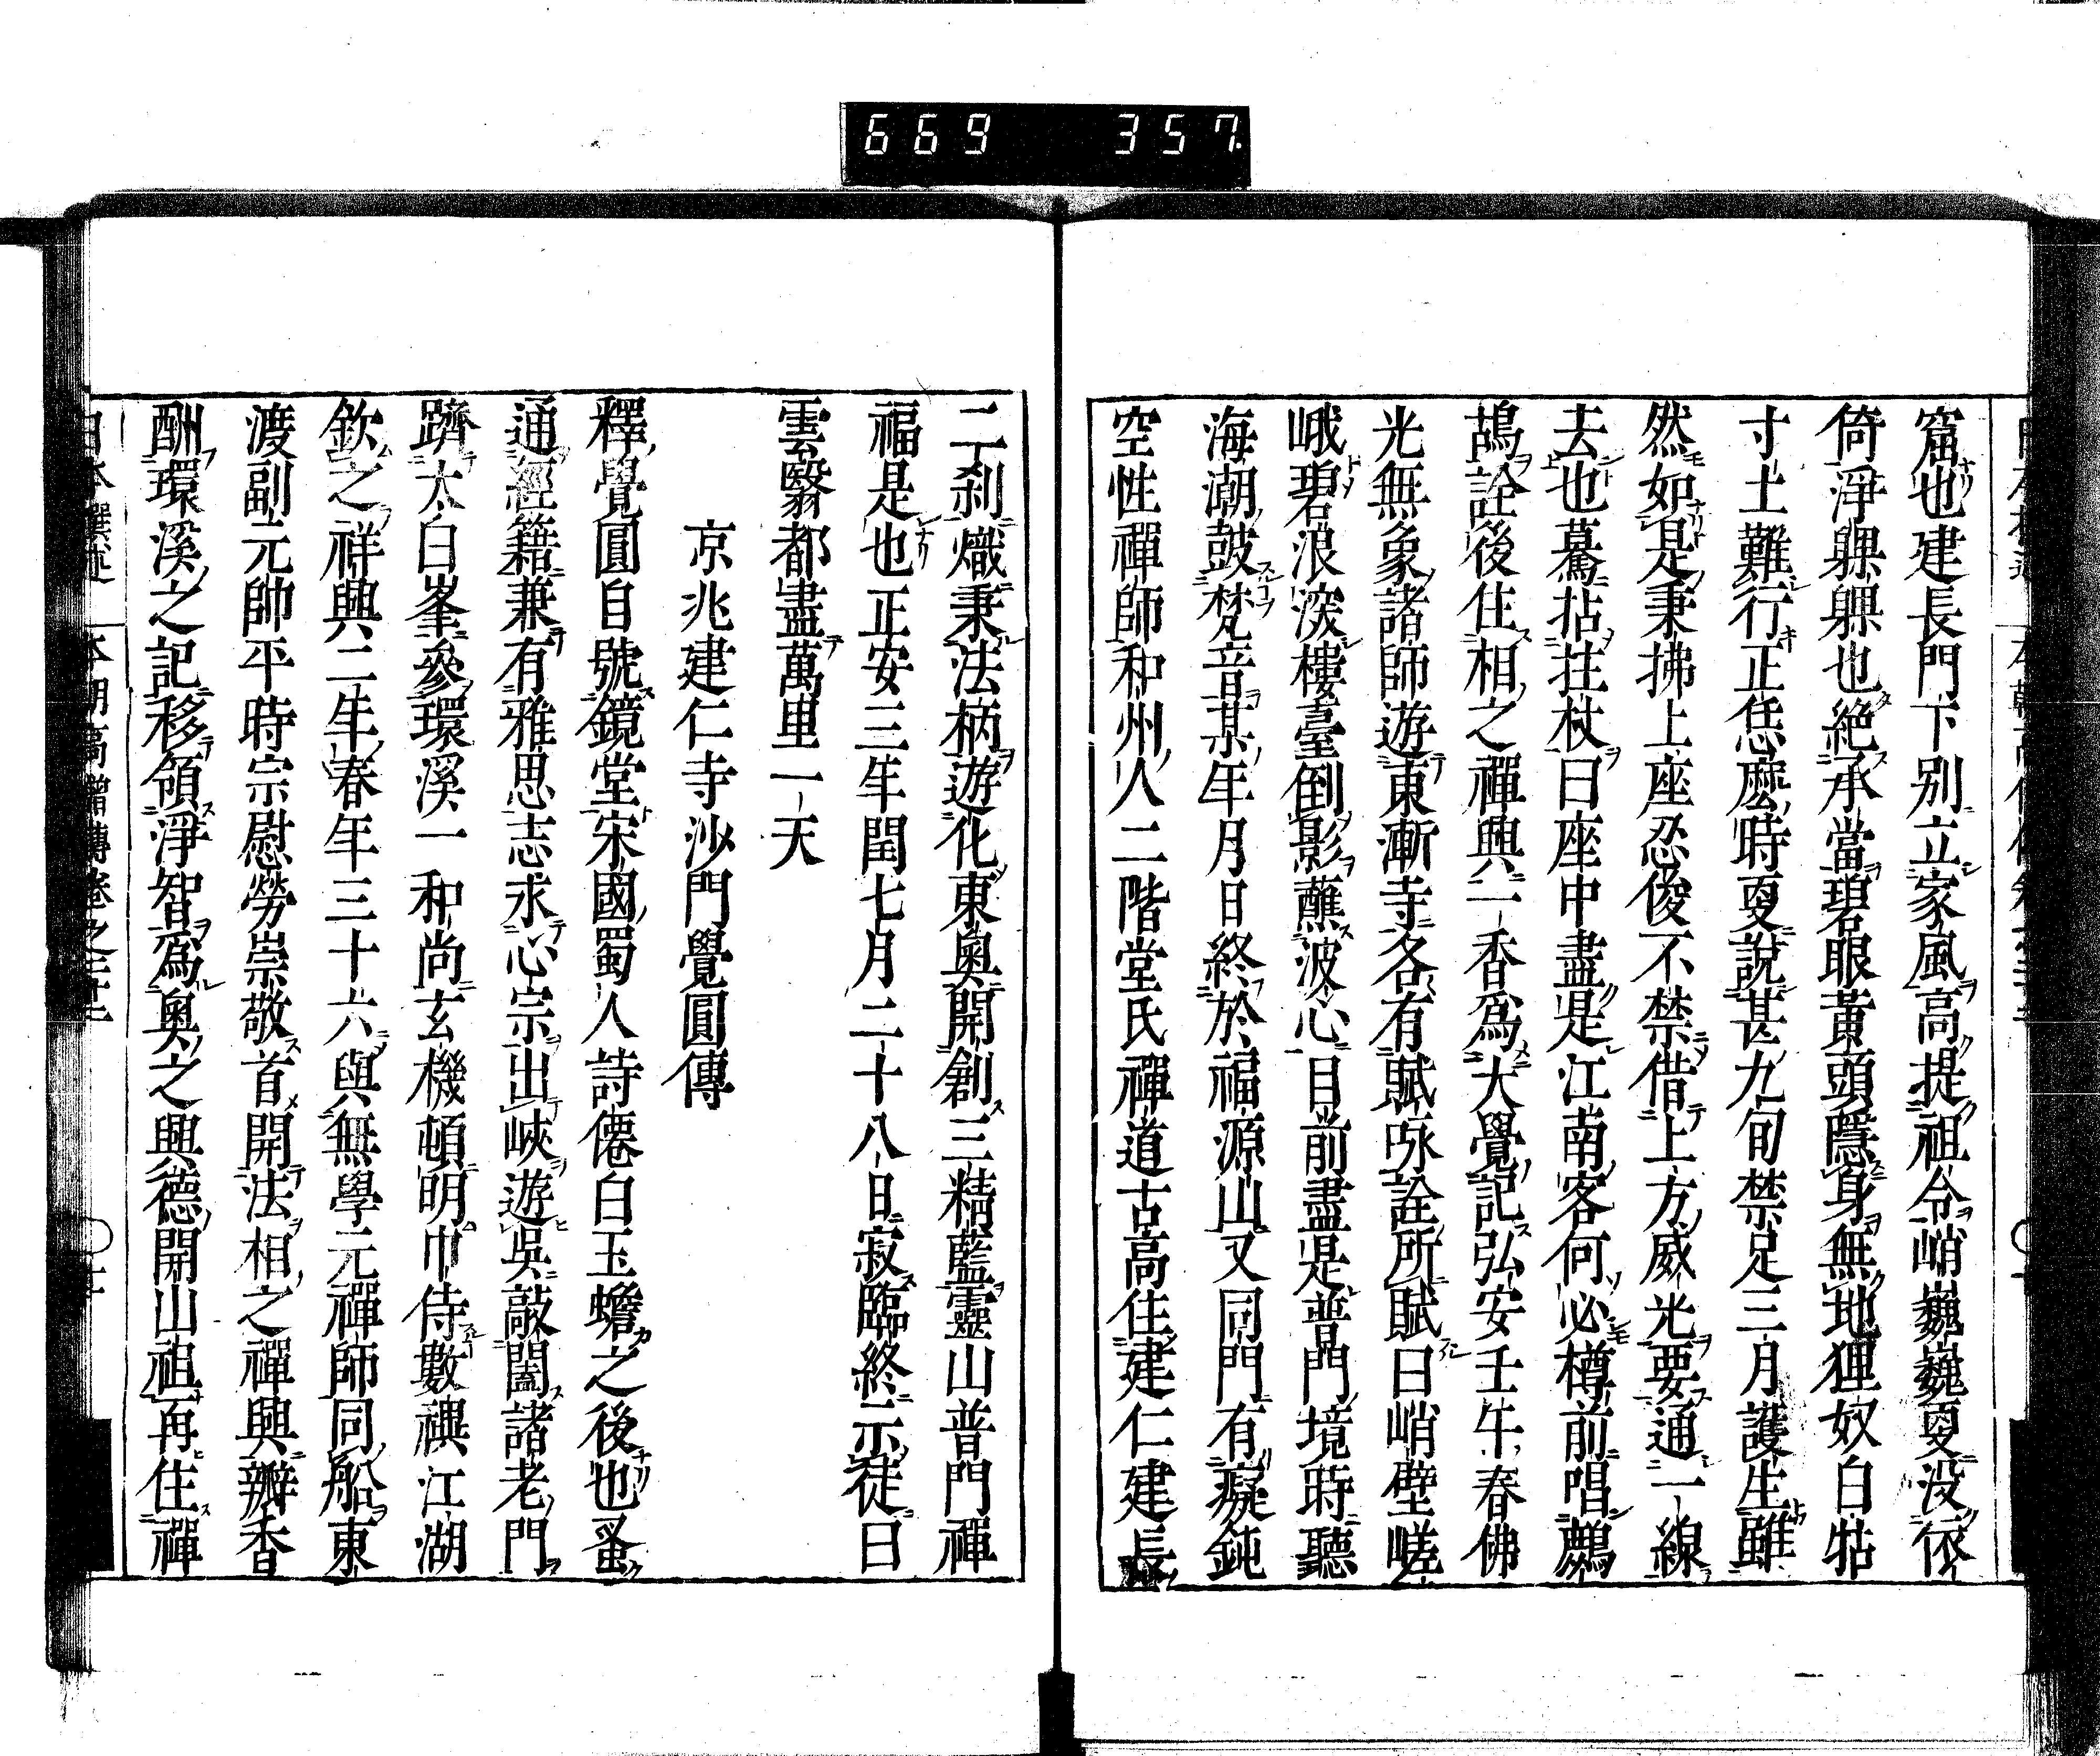 669 357
窟也建長門下別立家風高提祖令峭巍巍更没依
倚淨躶躶也絶承當碧眼黃頭隱身無地狸奴白牯
寸土難行正恁麽時更說甚九旬禁足三月護生雖
然如是秉拂上座忍俊不禁借上方威光要通一線
去也驀拈拄杖曰座中盡是江南客何必樽前唱鷓
鴣詮後住相之禪興一香爲大覺記弘安壬午春佛
光無象諸師遊東漸寺各有賦咏詮所賦曰峭壁嵯
峨碧浪深樓臺倒影蘸波心目前盡是普門境時聽
海潮鼓梵音某年月日終於福源山又同門有癡鈍
空性禪師和州人二階堂氏禪道古高住建仁建長
二刹熾秉法柄遊化東奧開創三精藍靈山普門禪
福是也正安三年閏七月二十八日寂臨終示徒曰
雲翳都盡萬里一天
京兆建仁寺沙門覺圓傳
釋覺圓自號鏡堂宋國蜀人詩僊白玉蟾之後也蚤
通經籍兼有雅思志求心宗出峽遊吳敲闔諸老門
躋太白峯參環溪一和尚玄機頓明巾侍數禩江湖
欽之祥興二年春年三十六與無學元禪師同船東
渡副元帥平時宗慰勞崇敬首開法相之禪興瓣香
酬環溪之記移領淨智爲奧之興德開山祖再住禪
日本撰述 本朝高僧傳卷之二十二